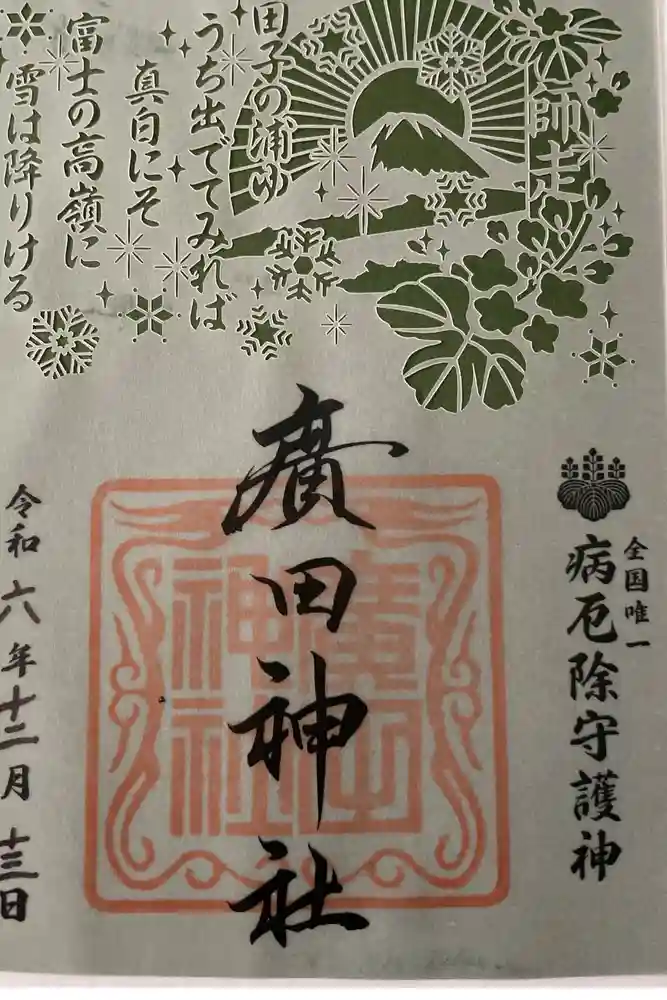 師走
田子の浦ゆ
うち出でてみれば
真白にそ
富士の高嶺に
雪は降りける
全国唯一
病厄除守護神
廣田神社
廣田
神社
令和六年十二月十三日